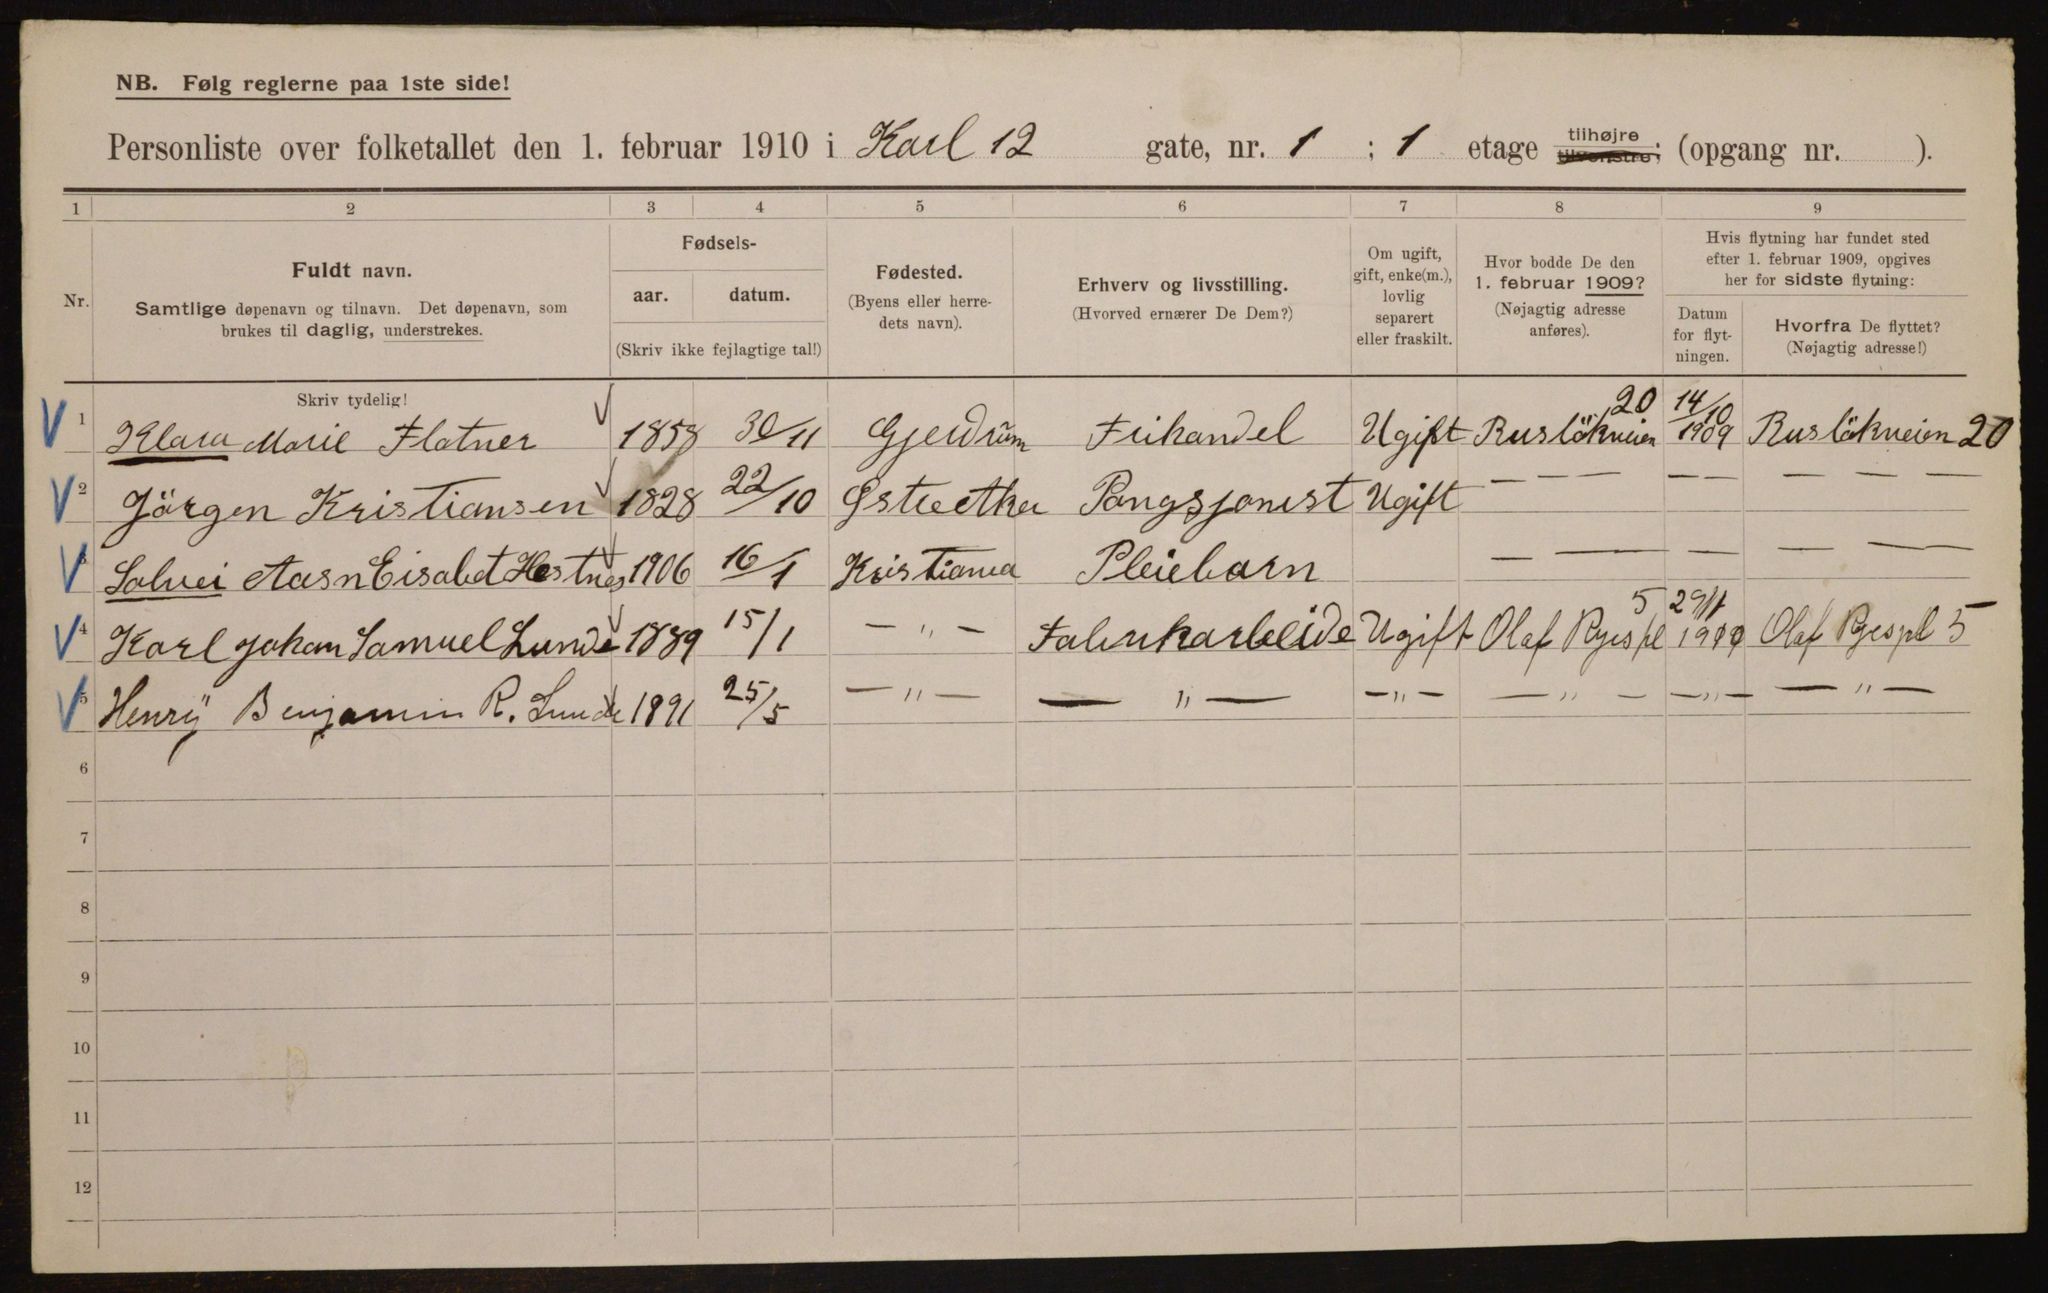 NB. Følg reglerne paa 1ste side!
Personliste over folketallet den 1. februar 1910 i Karl 12 gate, nr. 1 ; 1 etage tilhøjre tilvenstre; (opgang nr. ).
1 2 3 4 5 6 7 8 9
Nr.
Fuldt navn.
Samtlige døpenavn og tilnavn. Det døpenavn, som
brukes til daglig, understrekes.
Skriv tydelig!
Fødsels-
aar. datum.
(Skriv ikke fejlagtige tal!)
Fødested.
(Byens eller herre-
dets navn).
Erhverv og livsstilling.
(Hvorved ernærer De Dem?)
Om ugift,
gift, enke(m.),
lovlig
separert
eller fraskilt.
Hvor bodde De den
1. februar 1909?
(Nøjagtig adresse
anføres).
Hvis flytning har fundet sted
efter 1. februar 1909, opgives
her for sidste flytning:
Datum
for flyt-
ningen.
Hvorfra De flyttet?
(Nøjagtig adresse!)
1 Klara Marie Flatner 1858 30/11 Gjerdrum Frihandel Ugift Ruslökveien 20 14/10 1909 Ruslökveien 20
2 Jörgen Kristiansen 1828 22/10 Pangsjonist Ugift — — — — — — — —
Solvei Aasn Eisabet Hestnes 1906 16/1 Kristiania Pleiebarn — — — — — — —
4 Karl Johan Samuel Lunde 1889 15/1 — „ — Fabrikarbeide Ugift Olaf Ryespl 5 Olaf Ryespl 5
5 Henrÿ Benjamin R. Lunde 1891 25/5 — „ — — „ — — „ — — „ — — „ — — „ —
6
7
8
9
10
11
12